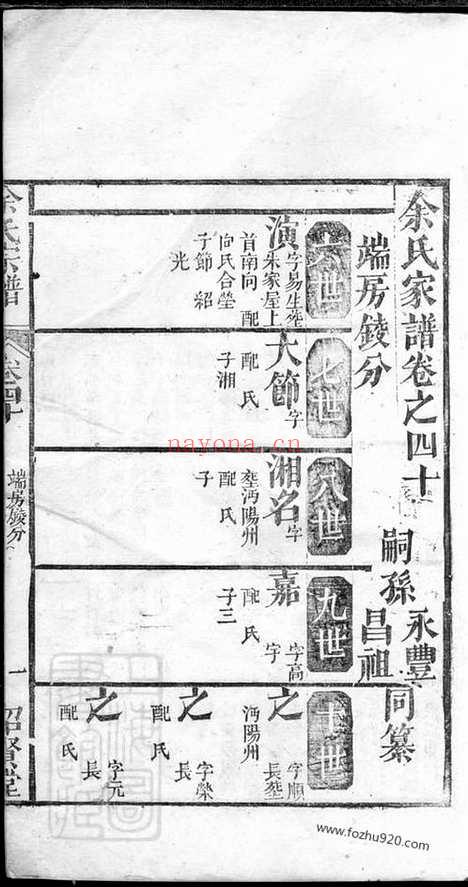 余氏家譜卷之四十
嗣孫 永豐 昌祖 同纂
端房錂分
六世
演 字易生塟
朱家屋上
首南向 配
向氏合塋
子節 紹
光
七世
大節 字
配 氏
子湘
八世
湘名 字
塟沔陽州
配 氏
子
九世
嘉 字高
字
配 氏
子三
十世
之 字順
長塟
沔陽州
之 字榮
長
配 氏
之 字元
長
配 氏
余氏宗譜
卷四十
端房錂分
一
紹賢堂
nayona.cn
www.fozhu920.com